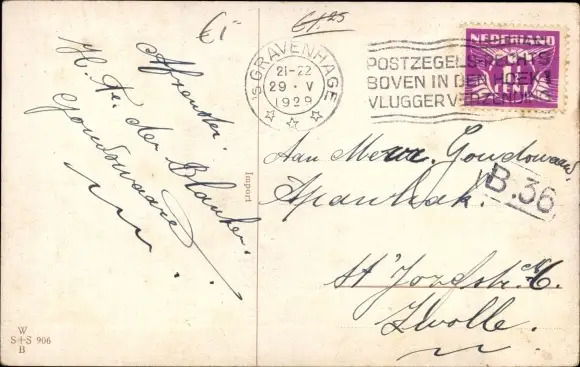 €1-
6.1.25
Afzender:
H. Fr. der Blanken.
Goudswaard
'S GRAVENHAGE
21-22
29 · V
1929
POSTZEGELS RECHTS
BOVEN IN DEN HOEK!
VLUGGER VERZENDING
NEDERLAND
CENT
Aan Mevr. Goudswaard,
Apenhak.
B.36
St Jozefstr.
Zwolle.
Import
W
S+S 906
B